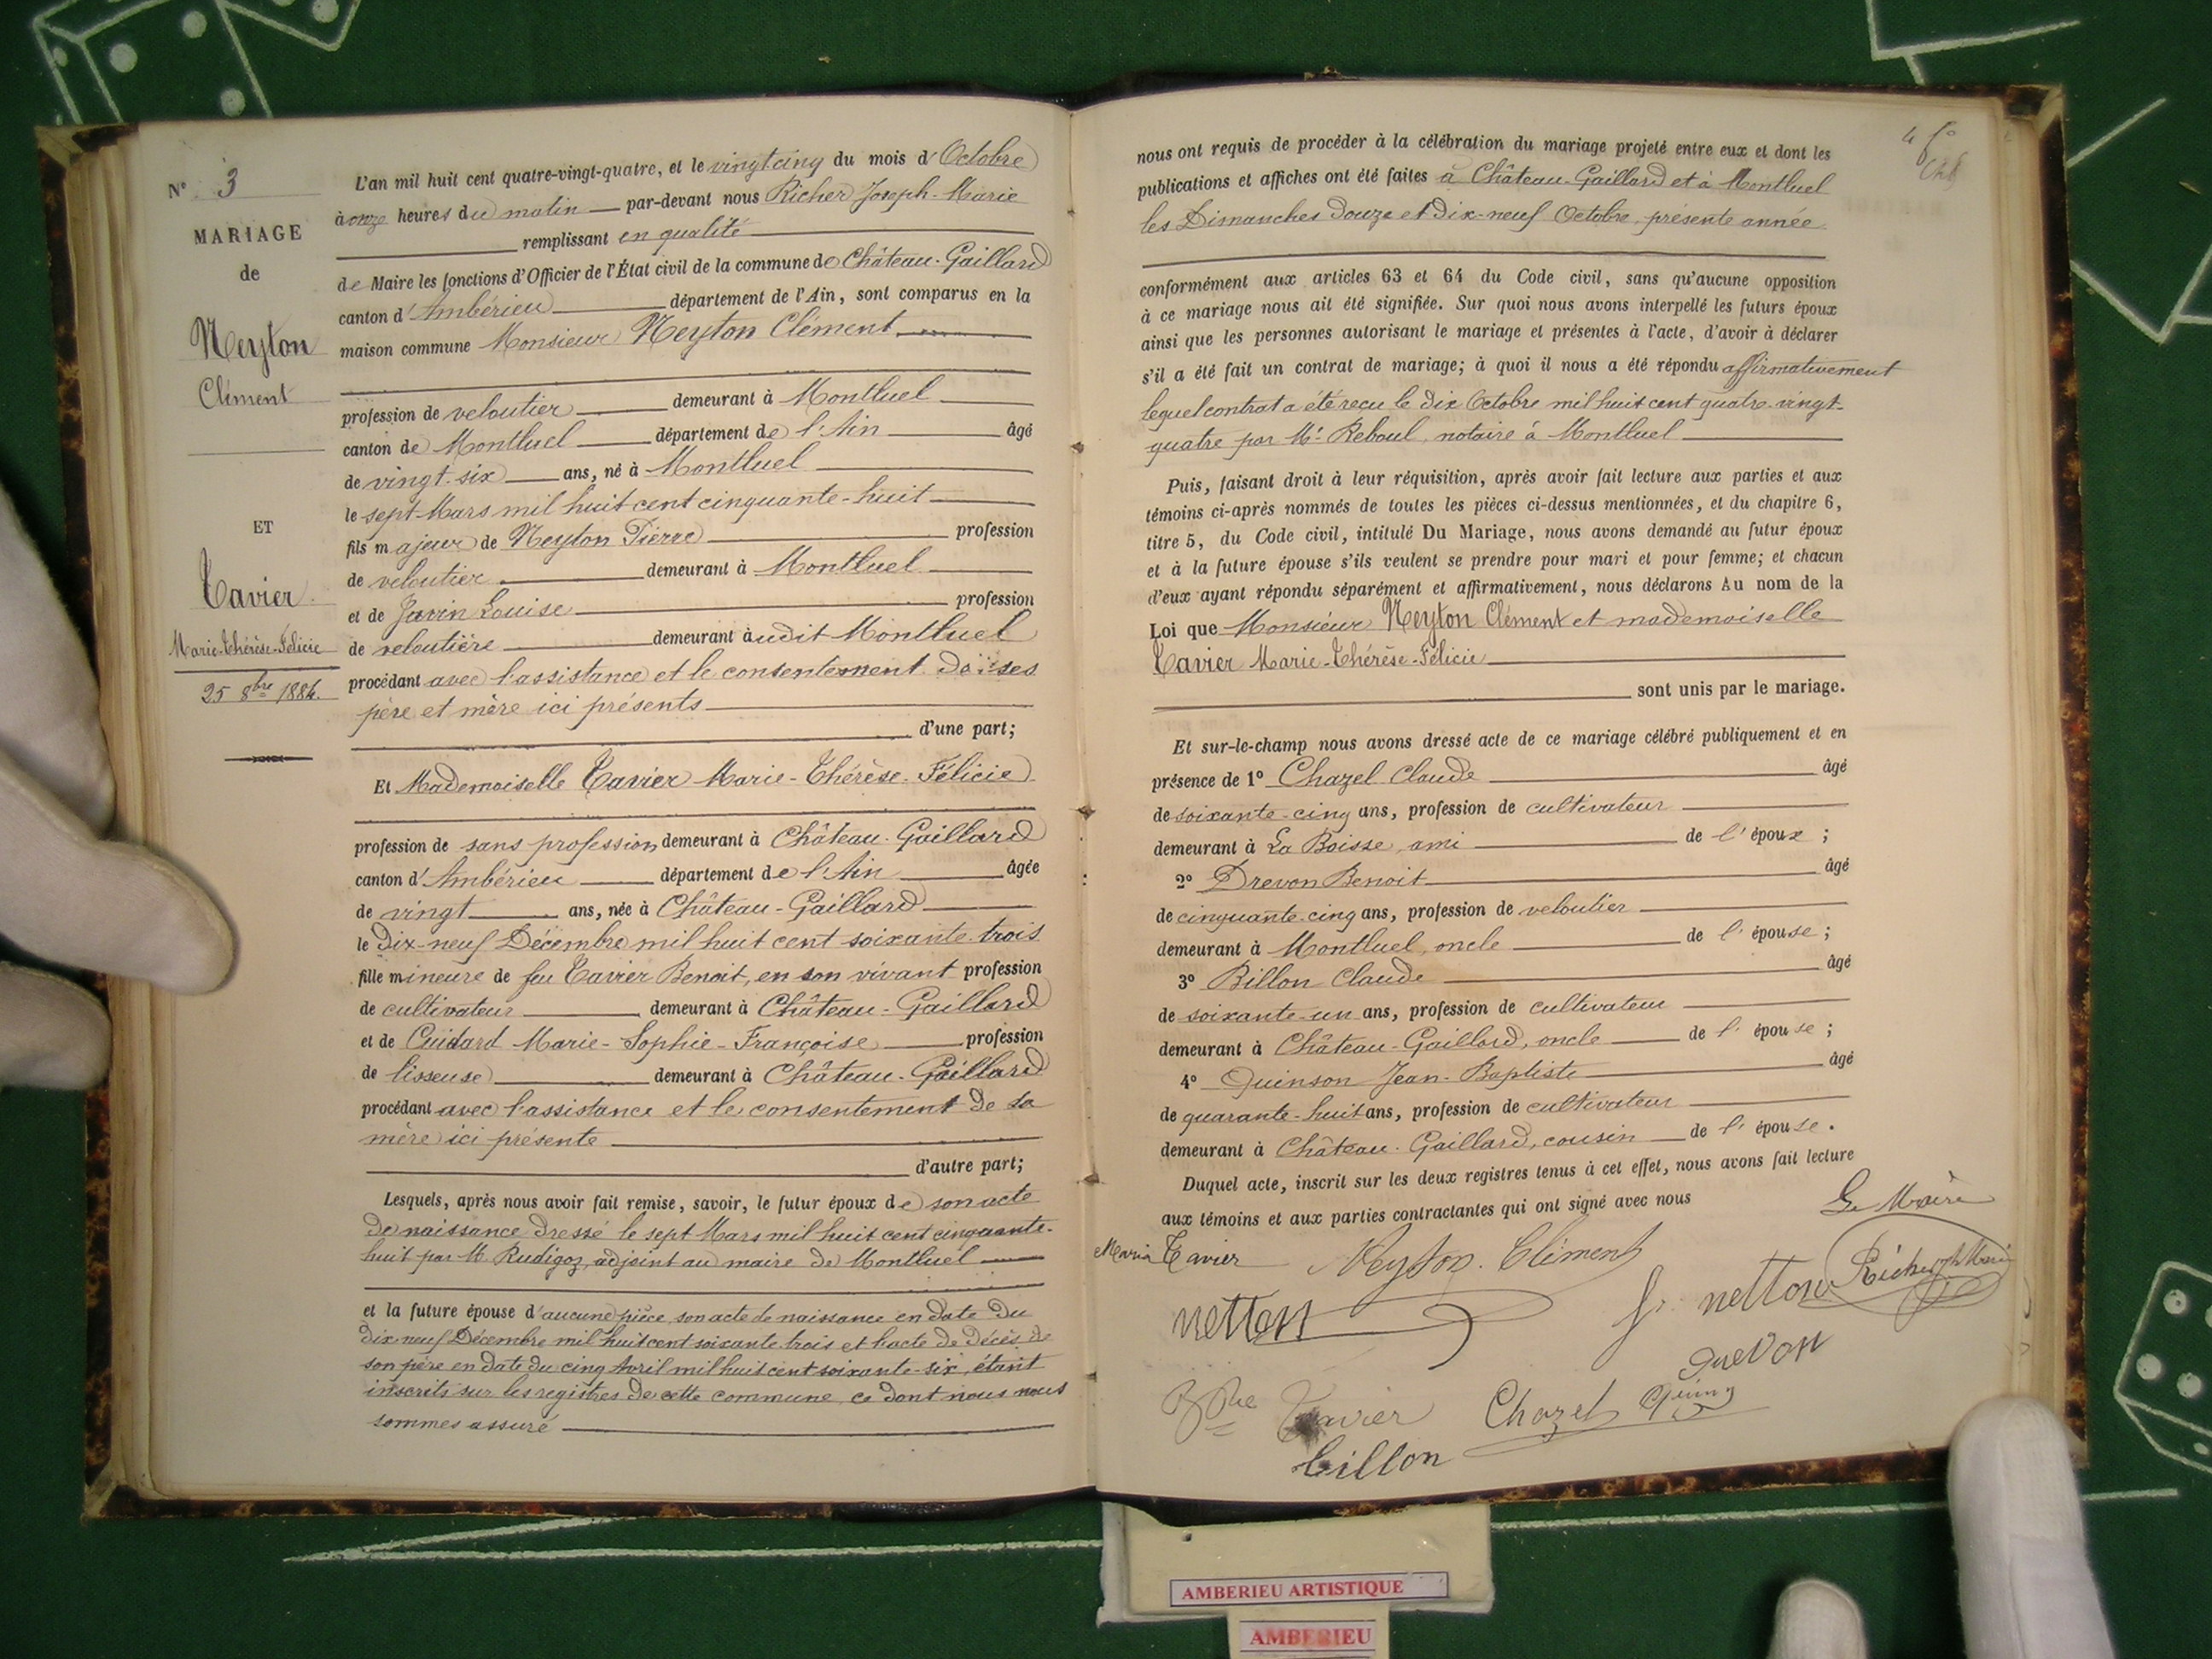 N° 3
MARIAGE
de
Neyton
Clément
ET
Tavier
Marie-Thérèse-Félicie
25 8bre 1884.
L'an mil huit cent quatre-vingt-quatre, et le vingt cinq du mois d'Octobre
à onze heures du matin par-devant nous Richer Joseph-Marie
remplissant en qualité
de Maire les fonctions d'Officier de l'État civil de la commune de Château-Gaillard
canton d'Ambérieu département de l'Ain, sont comparus en la
maison commune Monsieur Neyton Clément
profession de veloutier demeurant à Montluel
canton de Montluel département de l'Ain âgé
de vingt-six ans, né à Montluel
le sept Mars mil huit cent cinquante-huit
fils majeur de Neyton Pierre profession
de veloutier demeurant à Montluel
et de Juvin Louise profession
de veloutière demeurant audit Montluel
procédant avec l'assistance et le consentement de ses
père et mère ici présents
d'une part;
Et Mademoiselle Tavier Marie-Thérèse-Félicie
profession de sans profession demeurant à Château-Gaillard
canton d'Ambérieu département de l'Ain âgée
de vingt ans, née à Château-Gaillard
le dix-neuf Décembre mil huit cent soixante-trois
fille mineure de feu Tavier Benoit, en son vivant profession
de cultivateur demeurant à Château-Gaillard
et de Guidard Marie-Sophie-Françoise profession
de lisseuse demeurant à Château-Gaillard
procédant avec l'assistance et le consentement de sa
mère ici présente
d'autre part;
Lesquels, après nous avoir fait remise, savoir, le futur époux de son acte
de naissance dressé le sept Mars mil huit cent cinquante-
huit par M. Rudigoz, adjoint au maire de Montluel
et la future épouse d'aucune pièce, son acte de naissance en date du
dix-neuf Décembre mil huit cent soixante trois et l'acte de décès de
son père en date du cinq Avril mil huit cent soixante-six, étant
inscrits sur les registres de cette commune, ce dont nous nous
sommes assuré
4 fo
nous ont requis de procéder à la célébration du mariage projeté entre eux et dont les
publications et affiches ont été faites à Château-Gaillard et à Montluel
les Dimanches Douze et Dix-neuf Octobre, présente année
conformément aux articles 63 et 64 du Code civil, sans qu'aucune opposition
à ce mariage nous ait été signifiée. Sur quoi nous avons interpellé les futurs époux
ainsi que les personnes autorisant le mariage et présentes à l'acte, d'avoir à déclarer
s'il a été fait un contrat de mariage; à quoi il nous a été répondu affirmativement
lequel contrat a été reçu le dix Octobre mil huit cent quatre-vingt-
quatre par Me Reboul, notaire à Montluel
Puis, faisant droit à leur réquisition, après avoir fait lecture aux parties et aux
témoins ci-après nommés de toutes les pièces ci-dessus mentionnées, et du chapitre 6,
titre 5, du Code civil, intitulé Du Mariage, nous avons demandé au futur époux
et à la future épouse s'ils veulent se prendre pour mari et pour femme; et chacun
d'eux ayant répondu séparément et affirmativement, nous déclarons Au nom de la
Loi que Monsieur Neyton Clément et mademoiselle
Tavier Marie-Thérèse-Félicie
sont unis par le mariage.
Et sur-le-champ nous avons dressé acte de ce mariage célébré publiquement et en
présence de 1° Chazel Claude âgé
de soixante-cinq ans, profession de cultivateur
demeurant à La Boisse, ami de l'époux ;
2° Drevon Benoit âgé
de cinquante-cinq ans, profession de veloutier
demeurant à Montluel, oncle de l'épouse ;
3° Billon Claude âgé
de soixante-un ans, profession de cultivateur
demeurant à Château-Gaillard, oncle de l'épouse ;
4° Quinson Jean-Baptiste âgé
de quarante-huit ans, profession de cultivateur
demeurant à Château-Gaillard, cousin de l'épouse.
Duquel acte, inscrit sur les deux registres tenus à cet effet, nous avons fait lecture
aux témoins et aux parties contractantes qui ont signé avec nous
Le Maire
Maria Tavier Neyton. Clément
netton netton Richer Jph Marie
drevon
Tavier Chazel
billon
AMBERIEU ARTISTIQUE
AMBERIEU